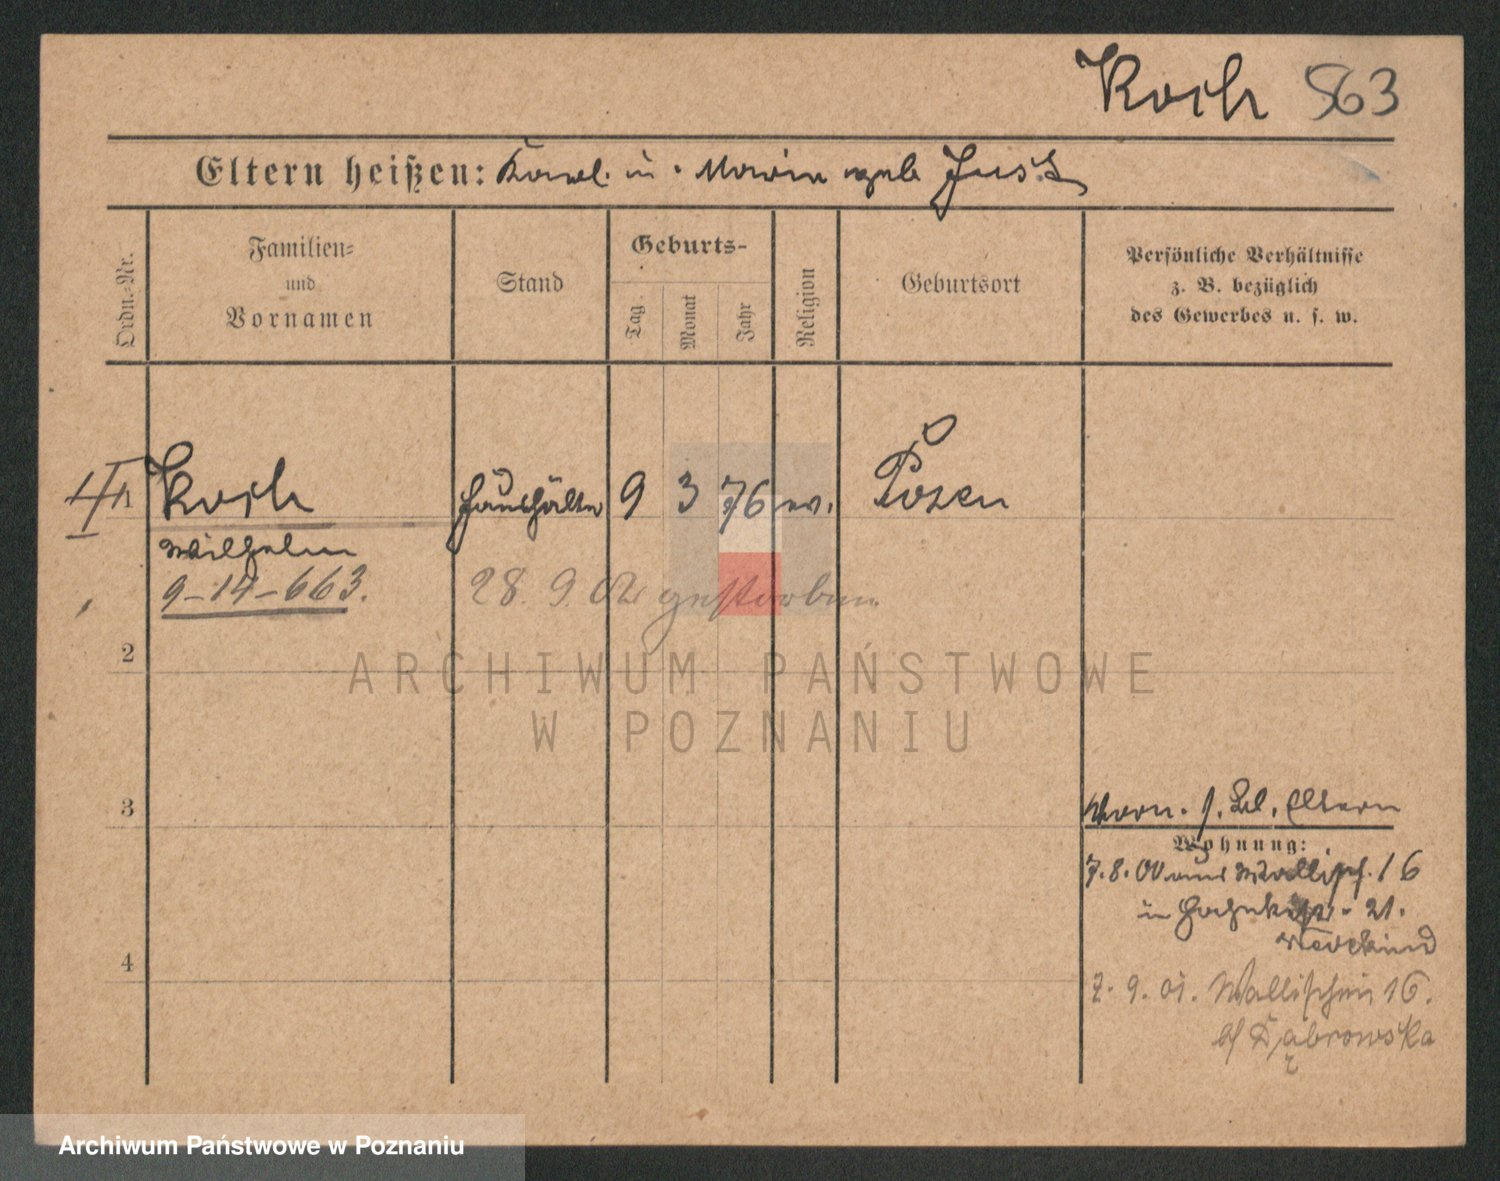 Koch 563
Eltern heißen: Karl u. Maria geb Just
Ordn.-Nr.
Familien-
und
Vornamen
Stand
Geburts-
Tag.
Monat
Jahr
Religion
Geburtsort
Persönliche Verhältnisse
z. B. bezüglich
des Gewerbes u. s. w.
1 Koch Haushälter 9 3 76 ev. Posen
Wilhelm
9-14-663. 28. 9. 02 gestorben
2
3
4
s. Bl. Eltern
Wohnung:
7. 8. 00 aus Wallisch. 16
in 21.
2. 9. 01. Wallischei 16.
b/ Dąbrowska
ARCHIWUM PAŃSTWOWE
W POZNANIU
Archiwum Państwowe w Poznaniu